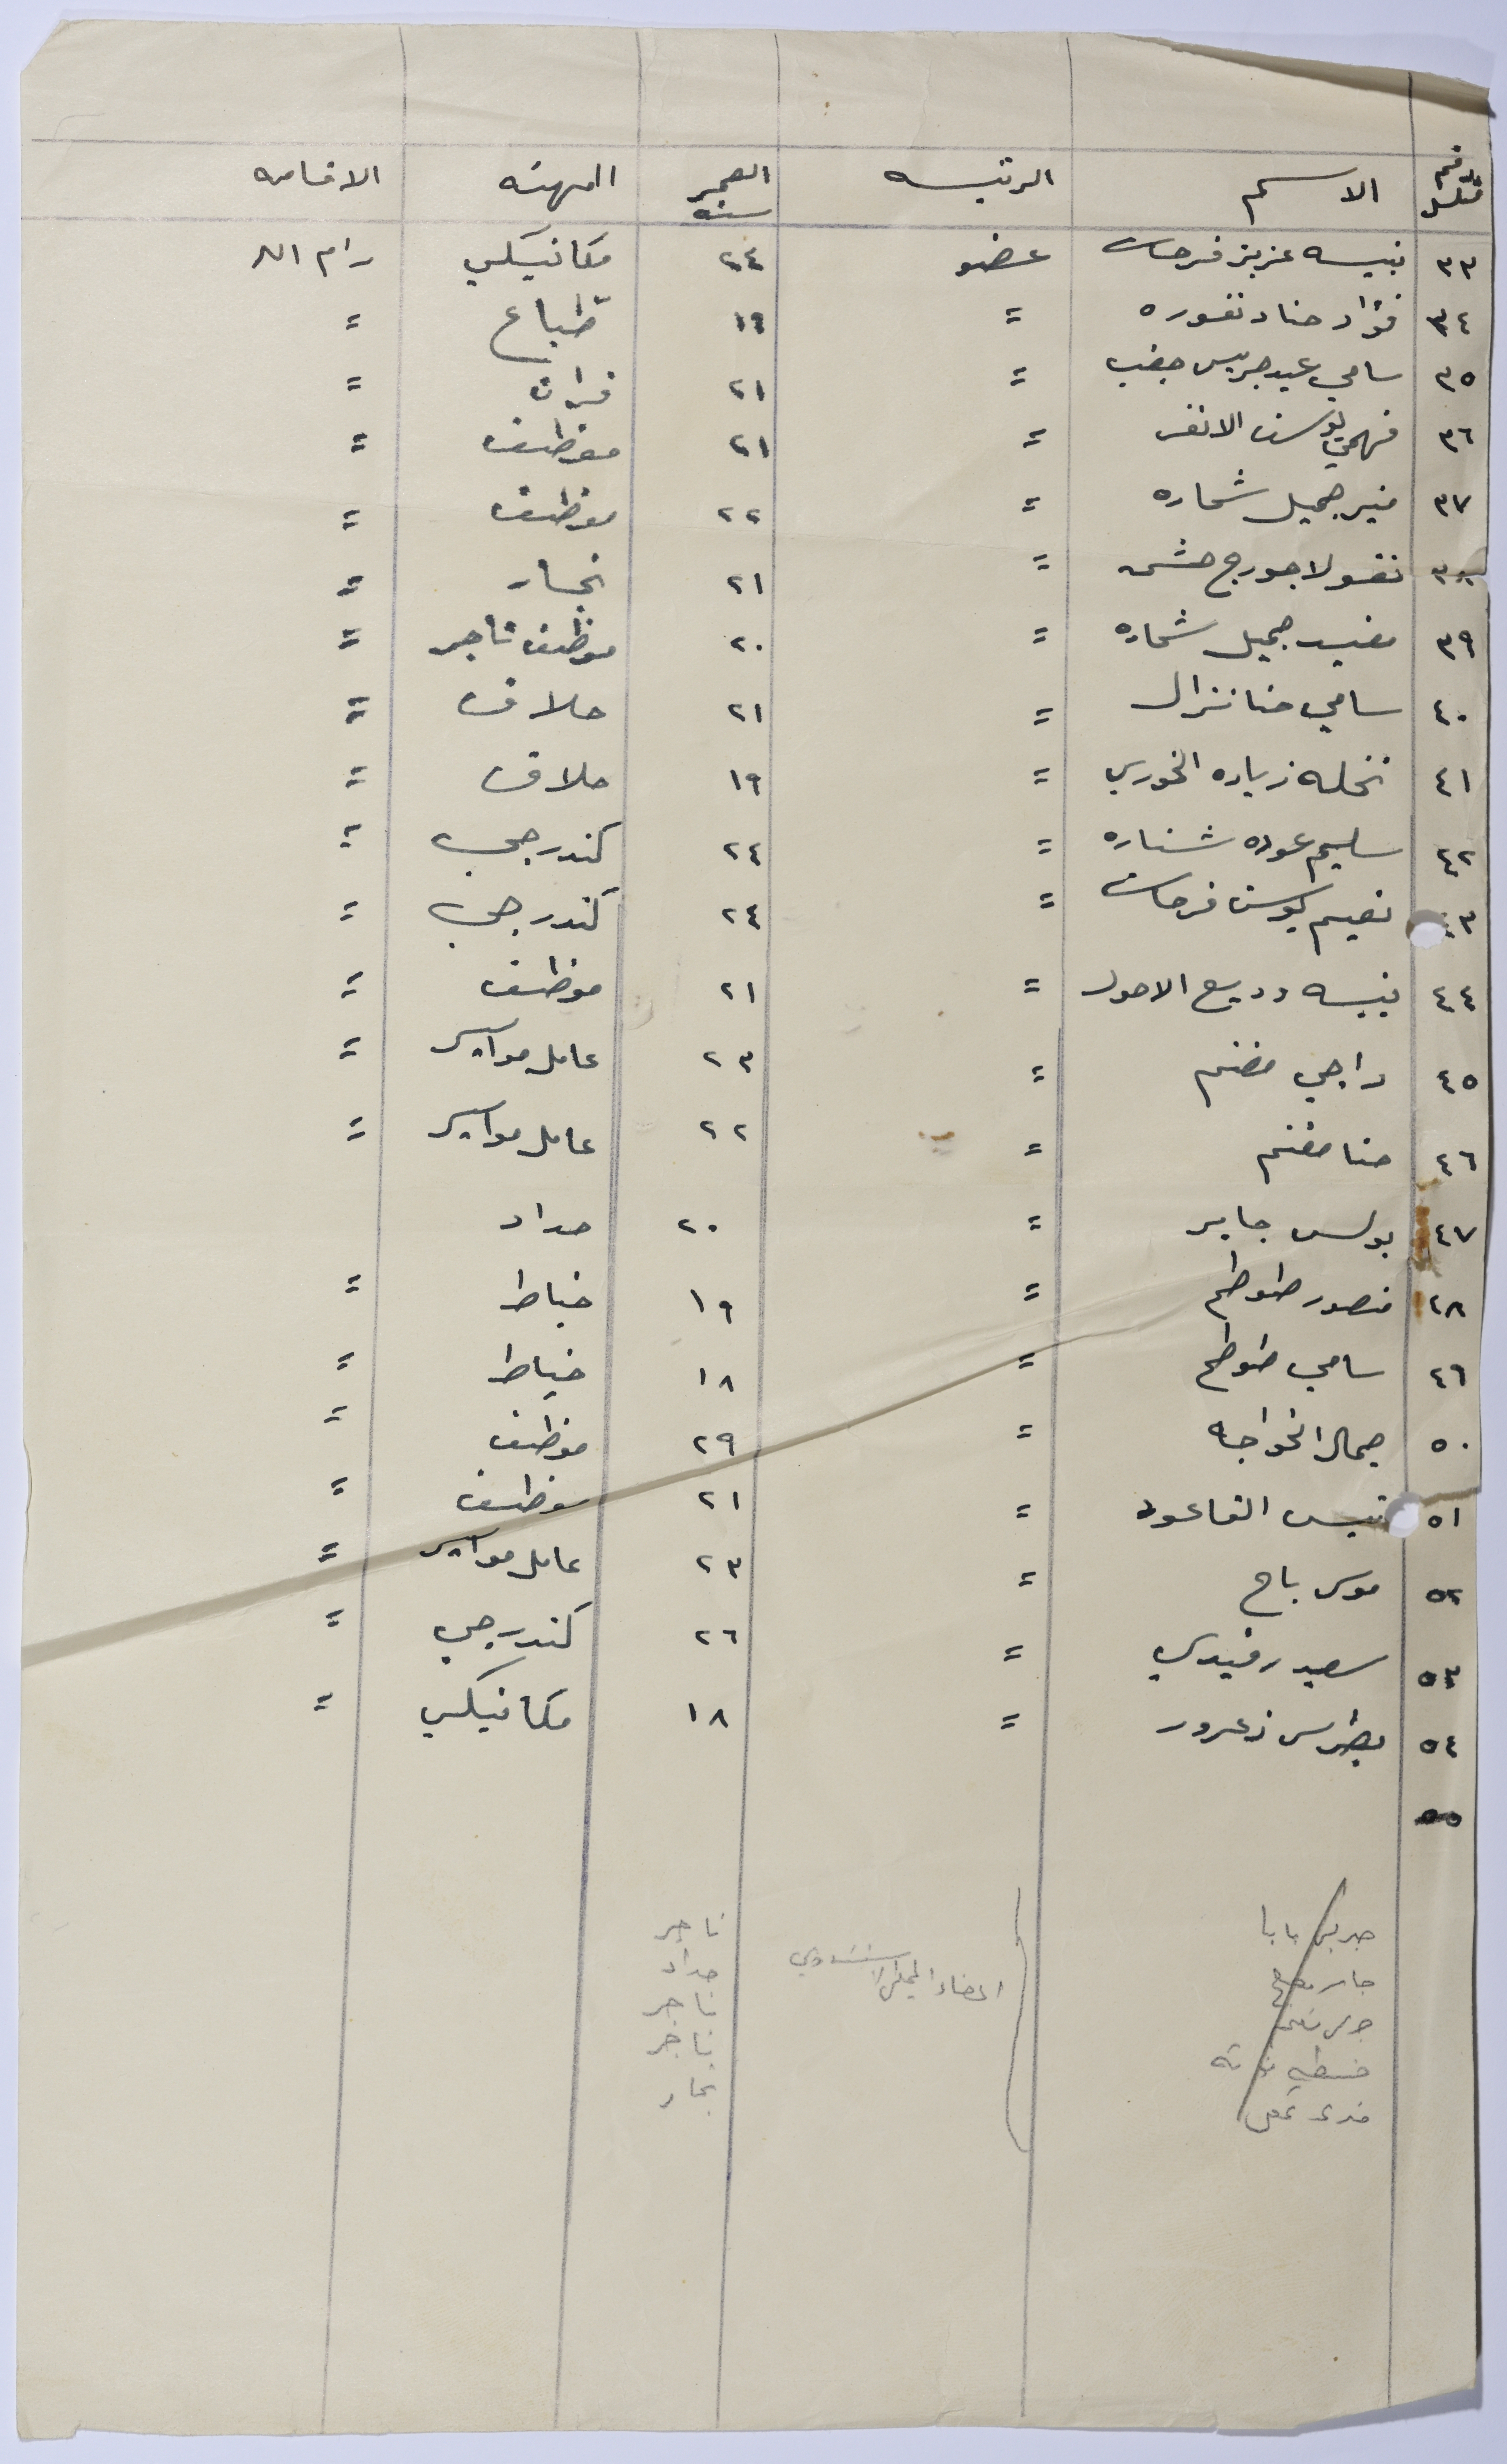 رقم متسلسل الاسم الرتبه العمر سنه المهنه الاقامه
٣٣ نبيه عزيز فرحات عضو ٢٤ مكانيكي رام الله
٣٤ فؤاد حنا دنفوره = ١٩ طباع =
٣٥ سامي عيد جريس جغب = ٢١ فران =
٣٦ فهمي يوسف الانقر = ٢١ موظف =
٣٧ منير جميل شحاده = ٢٢ موظف =
٣٨ نقولا جورج حشمه = ٢١ نجار =
٣٩ مفيد جميل شحاده = ٢٠ موظف تاجر =
٤٠ سامي حنا نزال = ٢١ حلاق =
٤١ نخله زياده الخوري = ١٩ حلاق =
٤٢ سليم عوده شناره = ٢٤ كندرجي =
٤٣ نعيم يوسف فرحات = ٢٤ كندرجي =
٤٤ نبيه وديع الاحول = ٢١ موظف =
٤٥ راجي مغنم = ٢٣ عامل مواسير =
٤٦ حنا مغنم = ٢٢ عامل مواسير =
٤٧ بولس جابر = ٢٠ حداد
٤٨ منصور طوطح = ١٩ خياط =
٤٩ سامي طوطح = ١٨ خياط =
٥٠ جمال الخواجا = ٢٩ موظف =
٥١ القاعود = ٢١ موظف =
٥٢ موسى باح = ٢٣ عامل مواسير =
٥٣ سعيد رفيدي = ٢٦ كندرجي =
٥٤ بطرس زعرور = ١٨ مكانيكي =
٥٥
بابا تاجر
حداد
اعضاء المجلس الاستشاري تاجر
تاجر
نجار